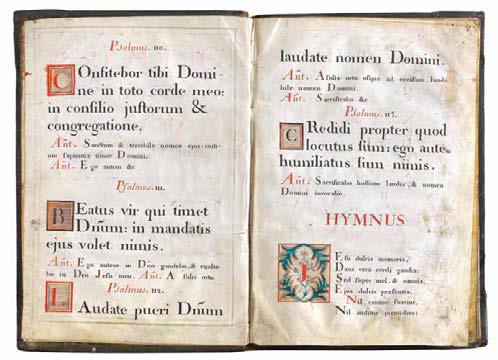 Psalmus. 110.
COnfitebor tibi Domi-
ne in toto corde meo:
in consilio justorum &
congregatione.
Añt. Sanctum & terribile nomen ejus: initi-
um sapientiæ timor Domini.
Añt. Ego autem &c
Psalmus. 111.
BEatus vir qui timet
Dñum: in mandatis
ejus volet nimis.
Añt. Ego autem in Dño gaudebo, & exulta-
bo in Deo Jesu meo. Añt. A solis ortu
Psalmus. 112.
LAudate pueri Dñum
laudate nomen Domini.
Añt. A solis ortu usque ad occasum lauda
bile nomen Domini.
Añt. Sacrificabo &c
Psalmus. 115.
CRedidi propter quod
locutus sum: ego autem
humiliatus sum nimis.
Añt. Sacrificabo hostiam laudis, & nomen
Domini invocabo.
HYMNUS
JEsu dulcis memoria,
Dans vera cordi gaudia:
Sed super mel, & omnia,
Ejus dulcis præsentia.
Nil canitur suavius,
Nil auditur jucundius: